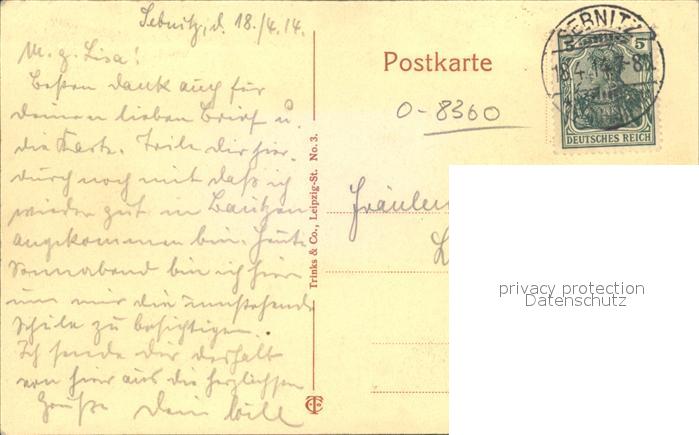 Sebnitz, d. 18./4.14.
M. g. Lisa!
Besten Dank auch für
deinen lieben Brief u.
die Karte. Teile dir hier-
durch noch mit daß ich
wieder gut in Bautzen
angekommen bin. Heute
Sonnabend bin ich hier
um mir die
Schule zu besichtigen.
Ich sende dir deshalb
von hier aus die herzlichsten
Grüße Dein Will
Trinks & Co., Leipzig-St. No. 3.
Postkarte
0-8360
SEBNITZ
18.4.14.7-8N
5 5
DEUTSCHES REICH
Fräulein
L
privacy protection
Datenschutz